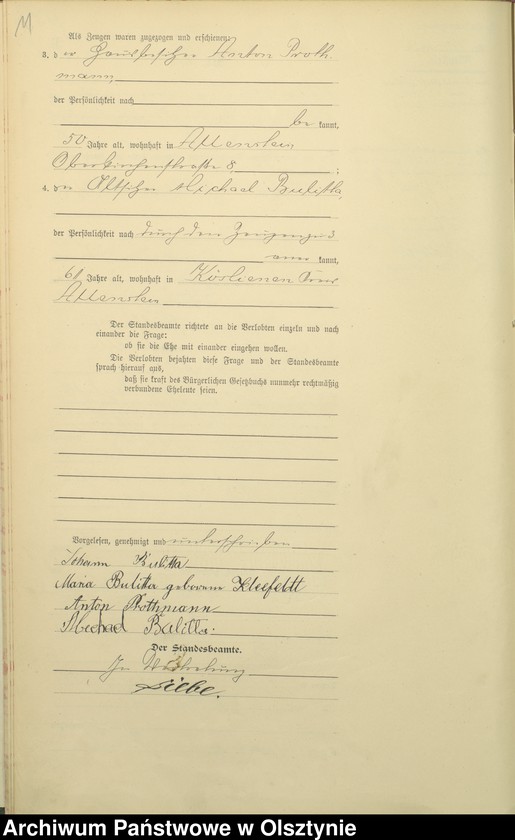 M
Als Zeugen waren zugezogen und erschienen:
3. der Hausbesitzer Anton Proth
mann
der Persönlichkeit nach
be kannt,
50 Jahre alt, wohnhaft in Allenstein,
Oberkirchenstraße 8 ;
4. der Altsitzer Michael Bulitta,
der Persönlichkeit nach durch den Zeugen zu 3
aner kannt,
61 Jahre alt, wohnhaft in Köslienen Kreis
Allenstein
Der Standesbeamte richtete an die Verlobten einzeln und nach
einander die Frage:
ob sie die Ehe mit einander eingehen wollen.
Die Verlobten bejahten diese Frage und der Standesbeamte
sprach hierauf aus,
daß sie kraft des Bürgerlichen Gesetzbuchs nunmehr rechtmäßig
verbundene Eheleute seien.
Vorgelesen, genehmigt und unterschrieben
Johann Bulitta
Maria Bulitta geborene Kleefeldt
Anton Prothmann
Michael Bulitta.
Der Standesbeamte.
In Vertretung
Liebe.
Archiwum Państwowe w Olsztynie